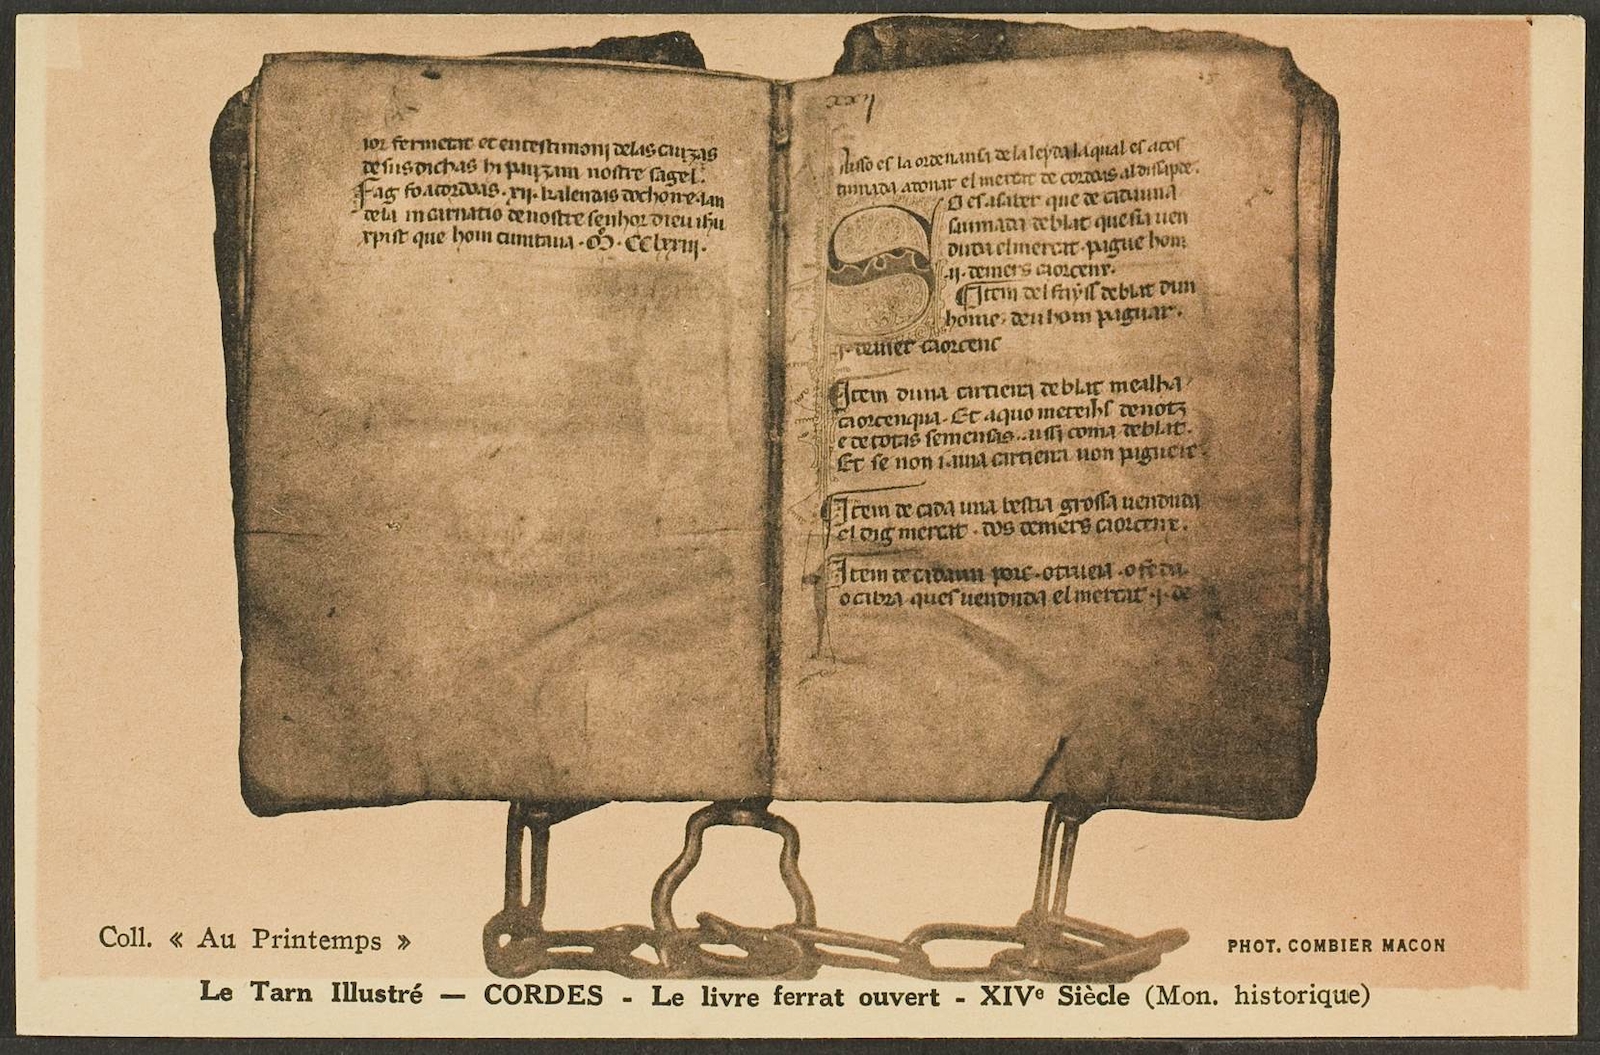 ior fermetat et en testimoni de las cauzas
desus dichas hi pauzam nostre sagel.
Fag fo a Cordoas . xii . kalendas dochoire . lan
dela in carnatio de nostre senhor dieu ihu
xpist que hom cumtaua . M . CC lxxiii .
xxii
Aisso es la ordenansa de la leyda laqual es acos
tumada a donar el mercat de cordoas al dissapte .
So es asaber que de cadauna
saumada de blat que sia uen
duda el mercat . pague hom
.ii. deniers caorcenx .
Item del fayss de blat dun
home . deu hom paguar .
.i. denier caorcenc
Item duna cartieira de blat mealha
caorcenqua . Et aquo meteihs de notz
e de totas semensas . aissi coma de blat .
Et se non i auia cartieira non pagueir
Item de cada una bestia grossa uenduda
el dig mercat . dos deniers caorcenx .
Item de cadaun porc . o trueia . o feda
o cabra ques uenduda el mercat . i . de
Coll. « Au Printemps »
PHOT. COMBIER MACON
Le Tarn Illustré — CORDES - Le livre ferrat ouvert - XIVe Siècle (Mon. historique)